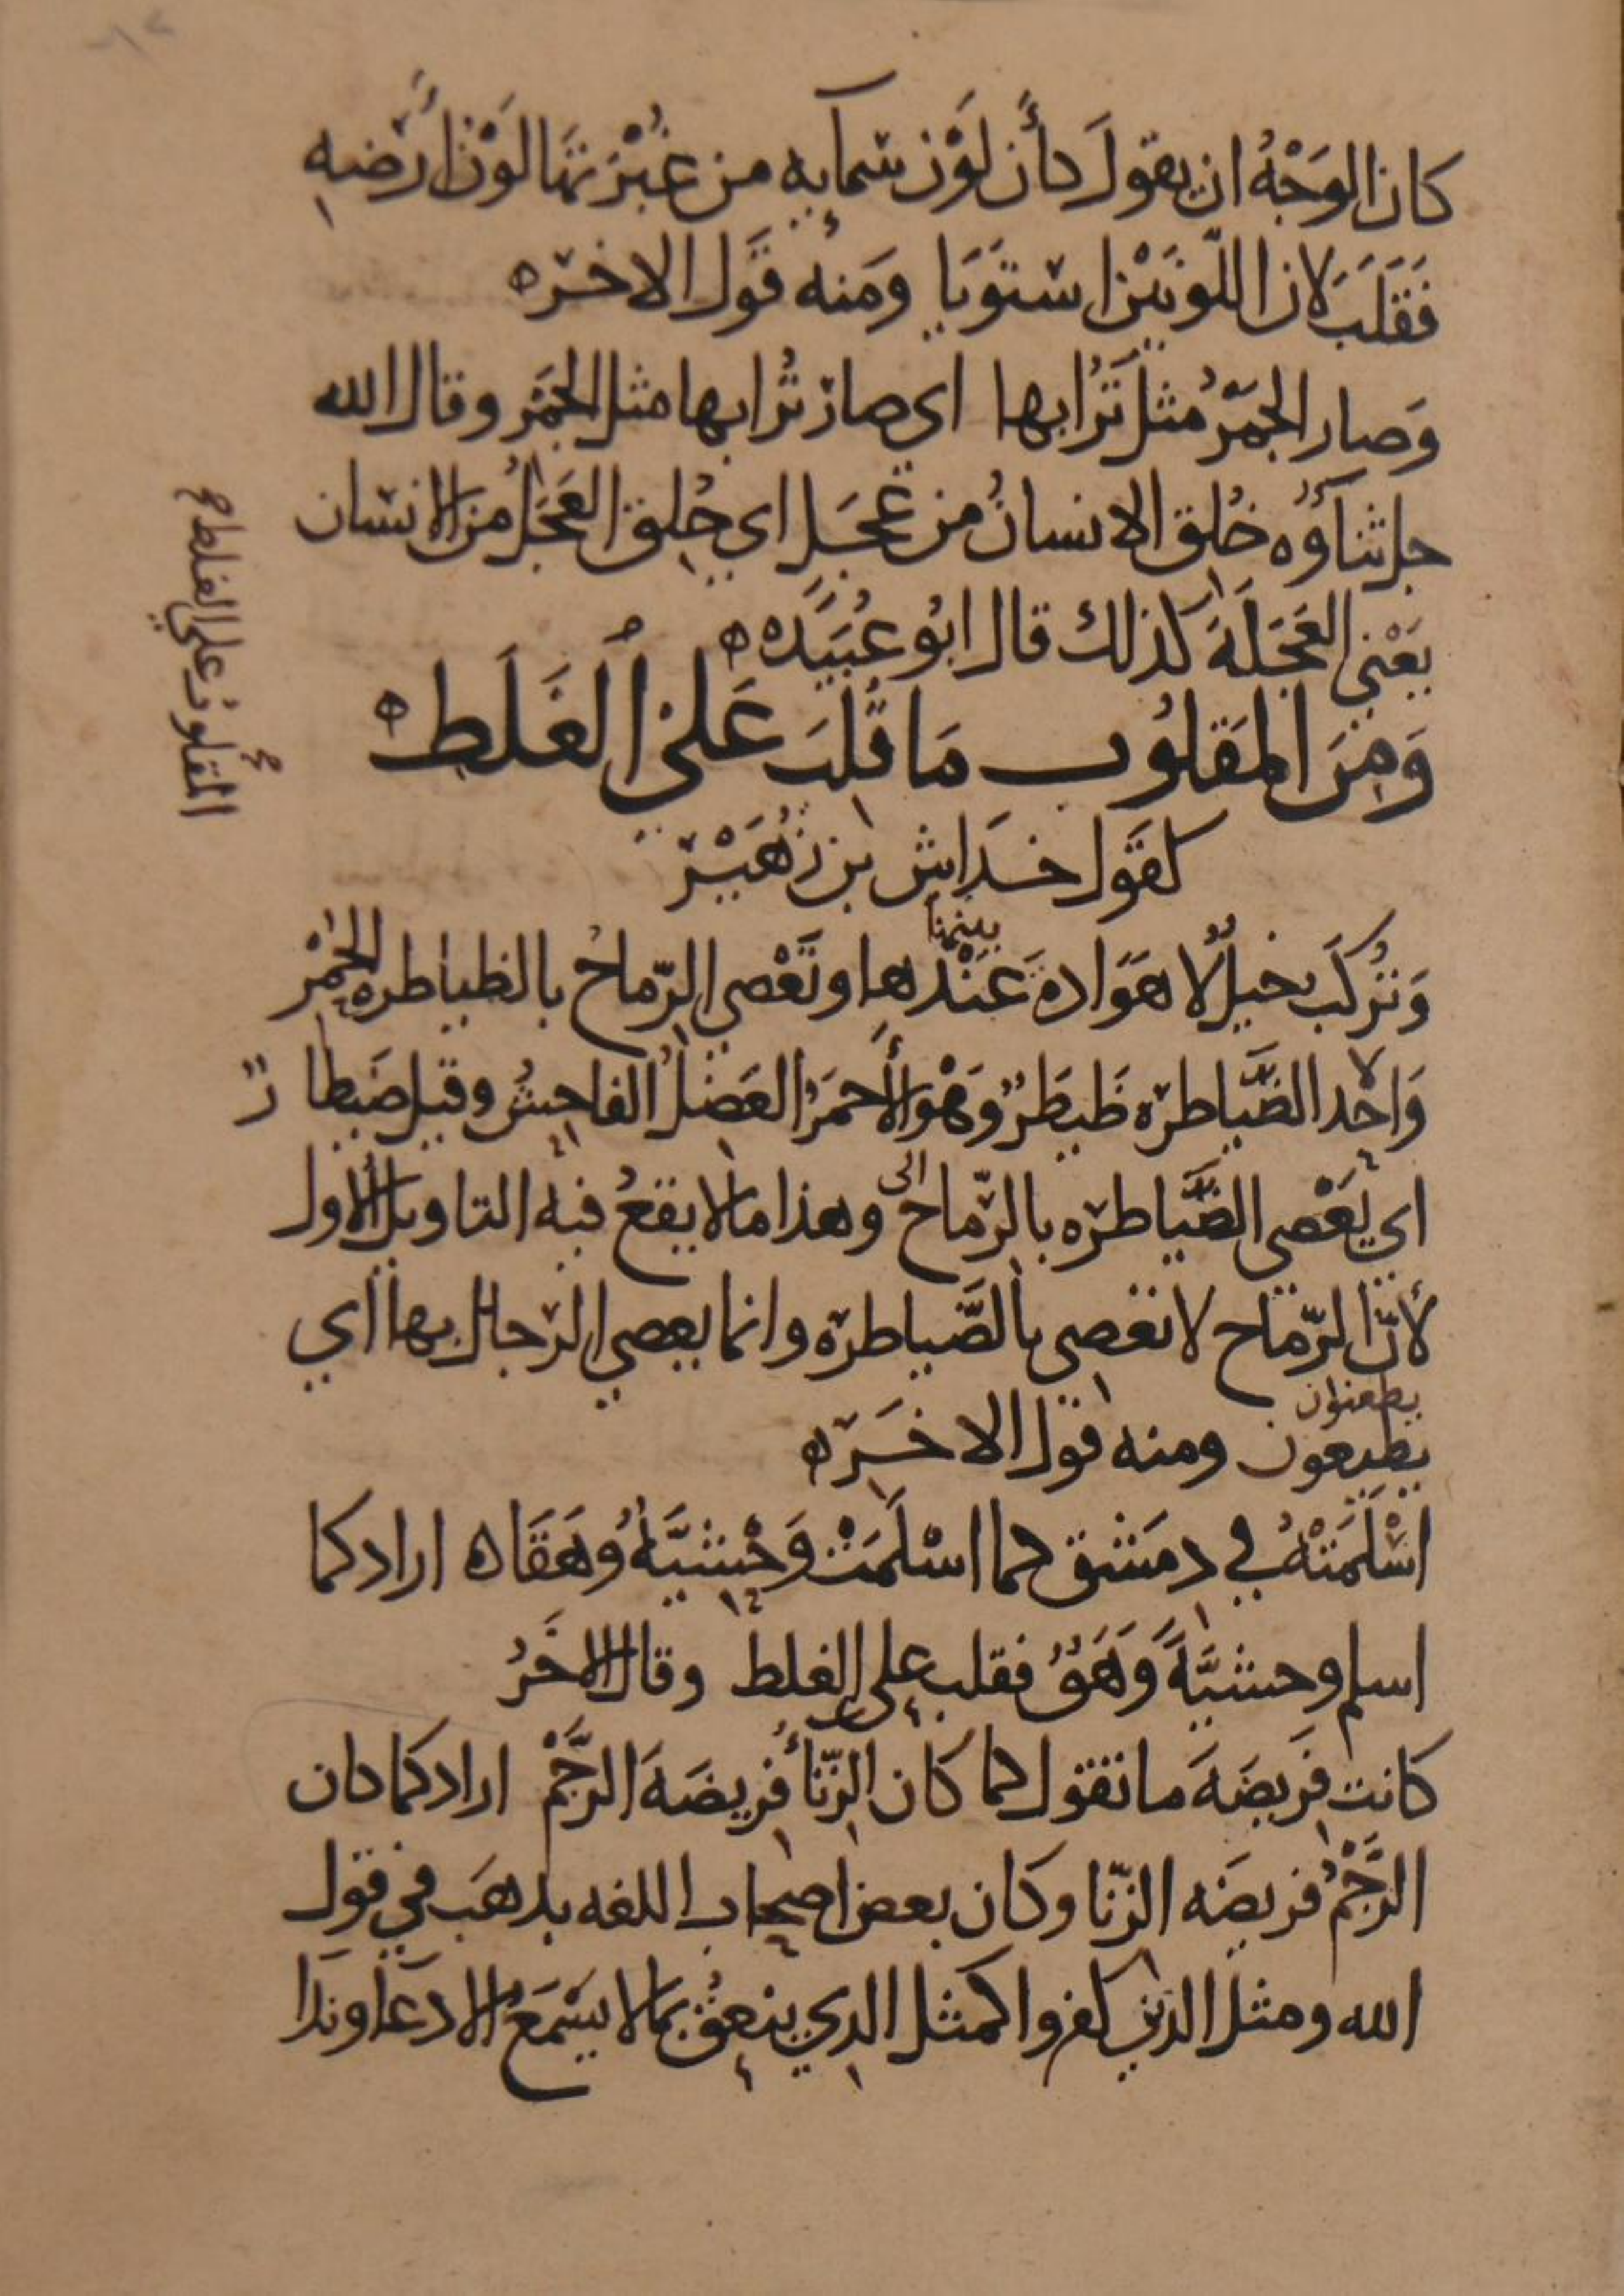 كان الوَجْهُ ان يقولَ كأَن لَوْن سَمَايِهِ من غُبْرَتهَا لَوْنُ أَرْضِهِ
فَقَلَبَ لان اللّونَيْن استَوَيَا ومَنه قَول الاخَر ه
وَصار الجَمْرُ مثلَ تُرَابِها اى صارَ تُرابها مثل الجَمْر وقال الله
جل ثناؤُه خُلِق الانسانُ من عَجَلٍ اي خُلِق العَجَلُ من الانسان
يَعْني العَجَلَةَ كذلك قال ابُو عُبَيْدَه ه
وَمِنَ المَقلوُب مَا قُلِبَ عَلىَ الغَلَط ه
كقَول خدَاش بن زُهَيْر
وَتُركَبُ خيلٌ لا هَوَادةَ عَنْدها وتَعْصي الرّماحُ بالظياطره الحُمْر
بينها
وَاحد الضَّياطرَه ظَيطَرٌ وَهْوَ الأَحمَرُ العَضِلُ الفاحِشُ وقيل ضَيطار
اي يَعْصى الضَّياطرَه بالرّماح وهذا مالا يقَعُ فيه التاويل الأول
الى
لأنّ الرّماح لا تعصى بالضَّياطرة وانما يعصي الرّجال بها اي
يطعنون
يطيعون ومنه قول الاخَر ه
اسْلَمَتْهُ في دمَشق كما اسْلَمَتْ وَحْشِيَّةٌ وُهَقَا ه اراد كما
اسلم وحشيَّةً وَهَقٌ فقلب على الغلط وقال الاخَرُ
كانت فريضَةَ ما تقول كما كان الزّنَاُ فَريضَةَ الرَّجْم اراد كما كان
الرَّجْمُ فريضَه الزّنا وكان بعض اصحاب اللغه يذهَب في قول
الله ومثل الذين كفروا كمثل الذي ينعِقُ بما لا يَسْمَعُ الا دعَا وندا
المقلوب على الغلط